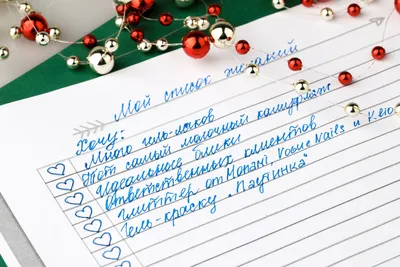 Мой список желаний
Хочу:
Много гель-лаков
Тот самый молочный камуфляж
Идеальные блики
Ответственных клиентов
Глиттер от Monami, Vogue Nails и Klio
Гель-краску "Паутинка"